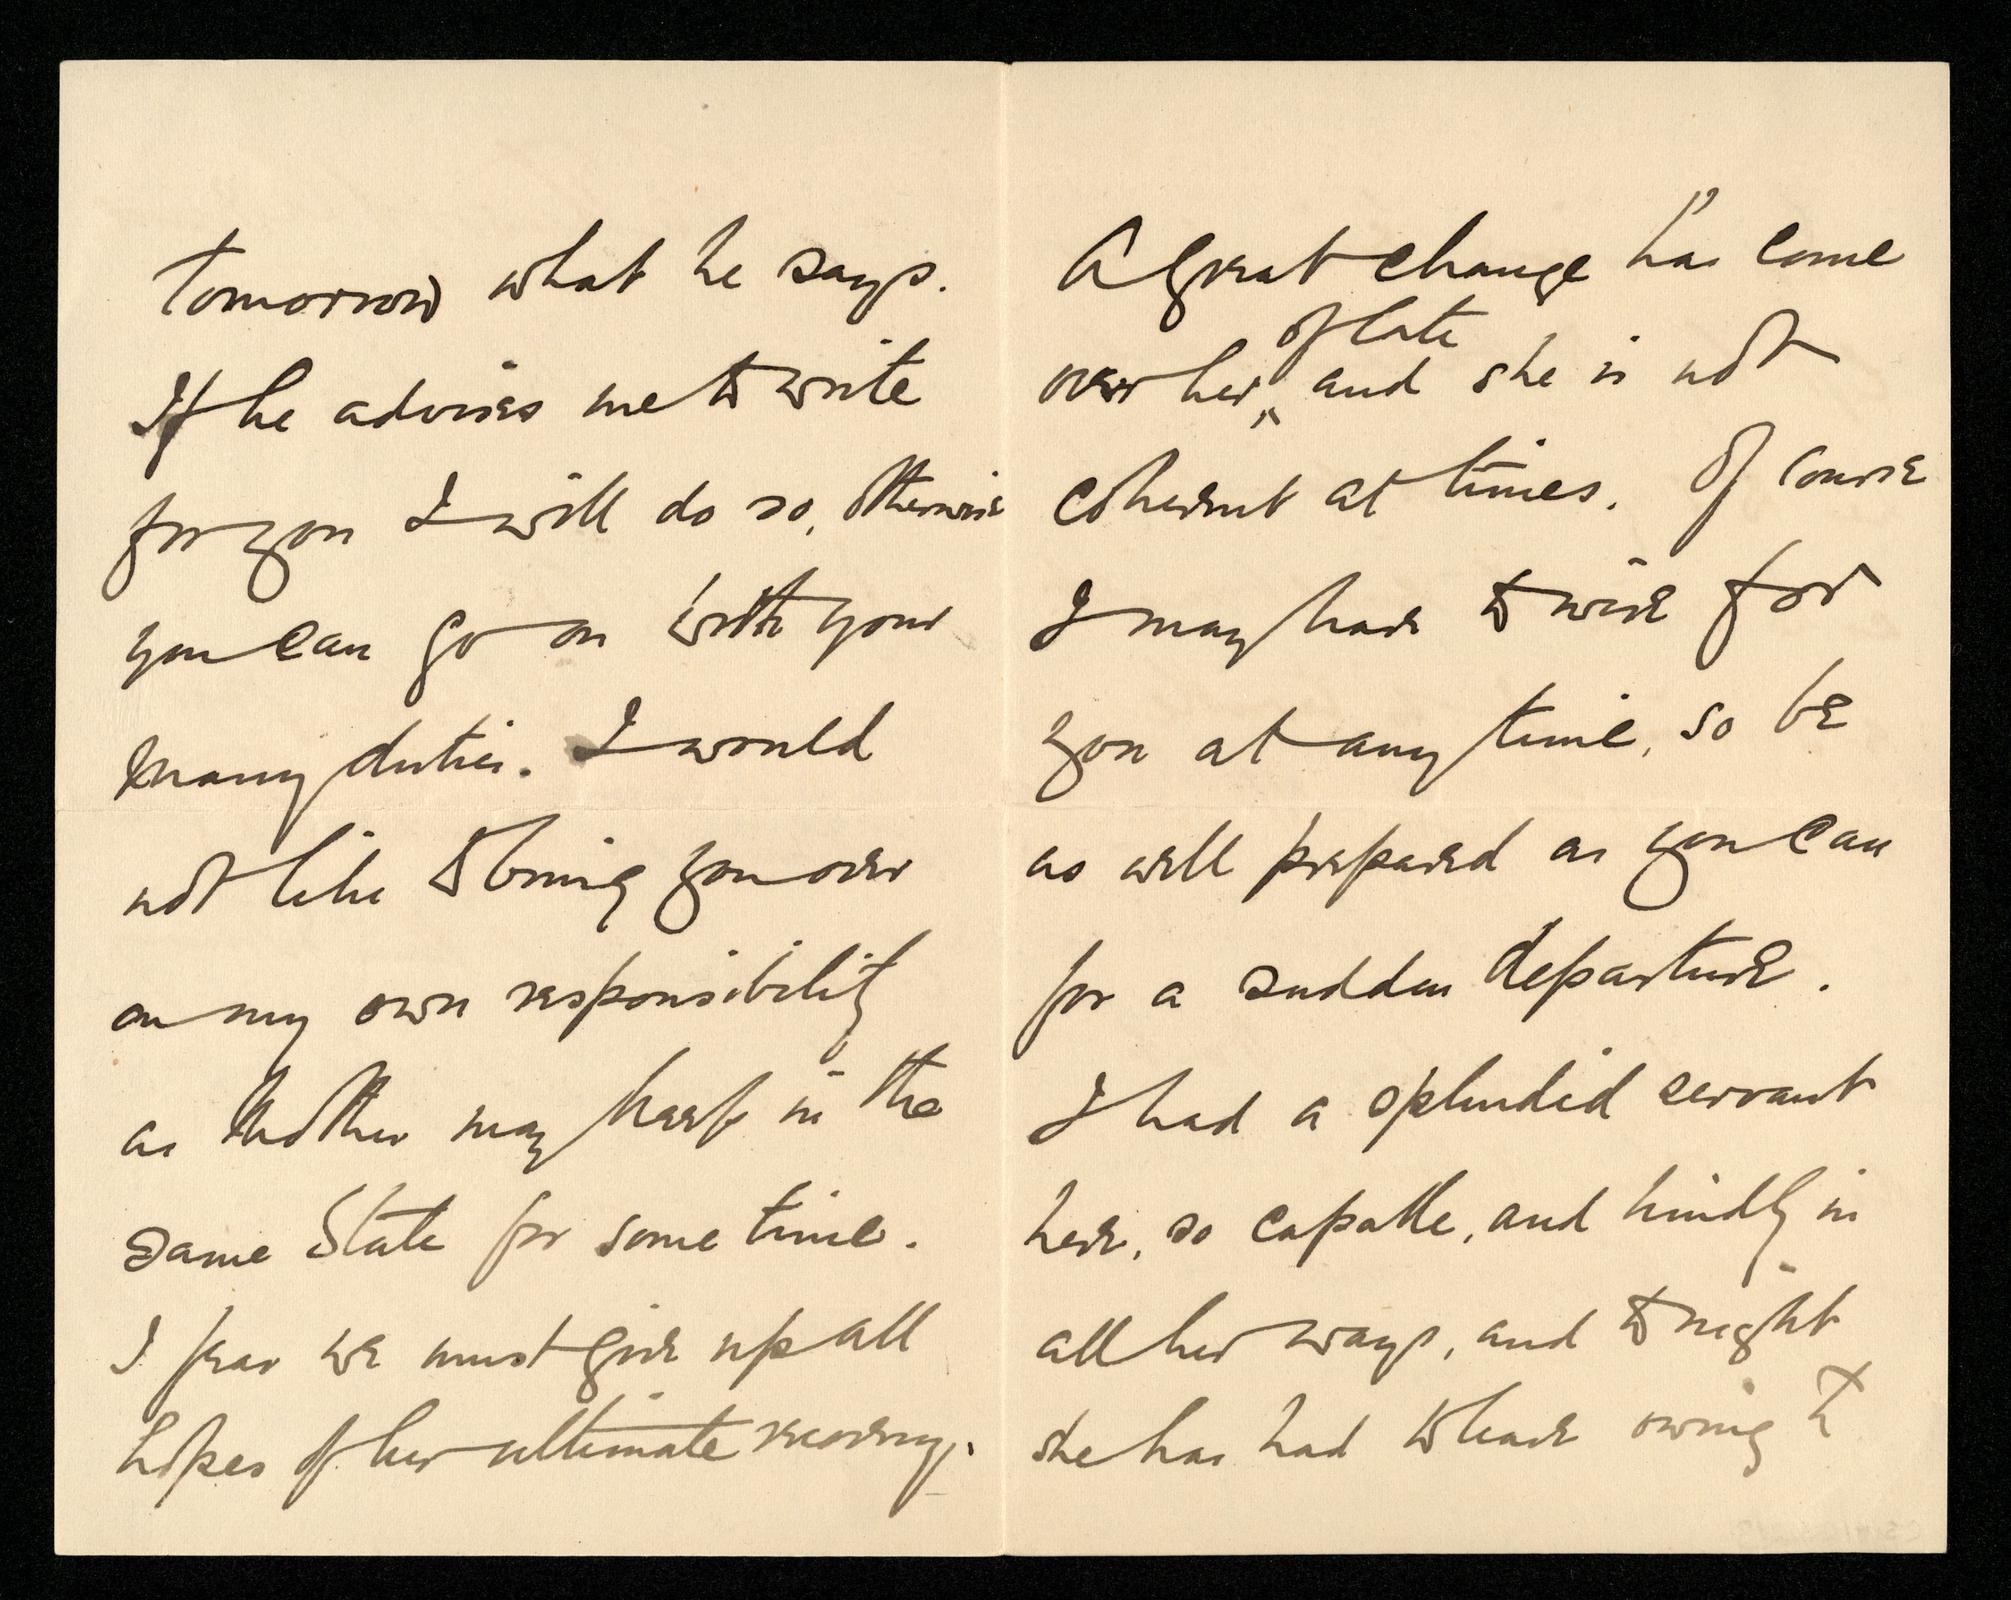 tomorrow what he says.
If he advises me to write
for you I will do so, otherwise
you can go on with your
many duties. I would
not like to bring you over
on my own responsibility
as Mother may keep in the
same State for some time.
I fear we must give up all
hopes of her ultimate recovery.
A great change has come
of late
over her, and she is not
coherent at times. Of course
I may have to wire for
you at any time, so be
as well prepared as you can
for a sudden departure.
I had a splendid servant
here, so capable, and kindly in
all her ways, and to night
she has had to leave owing to